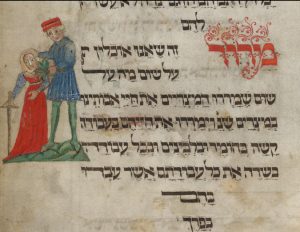 להם
מרור
זה שאנו אוכלין
על שום מה על
שום שמררו המצריים את חיי אבותינו
במצרים שנ וימררו את חייהם בעבודה
קשה בחומר ובלבנים ובכל עבודה
בשדה את כל עבודתם אשר עבדו
בהם
בפרך